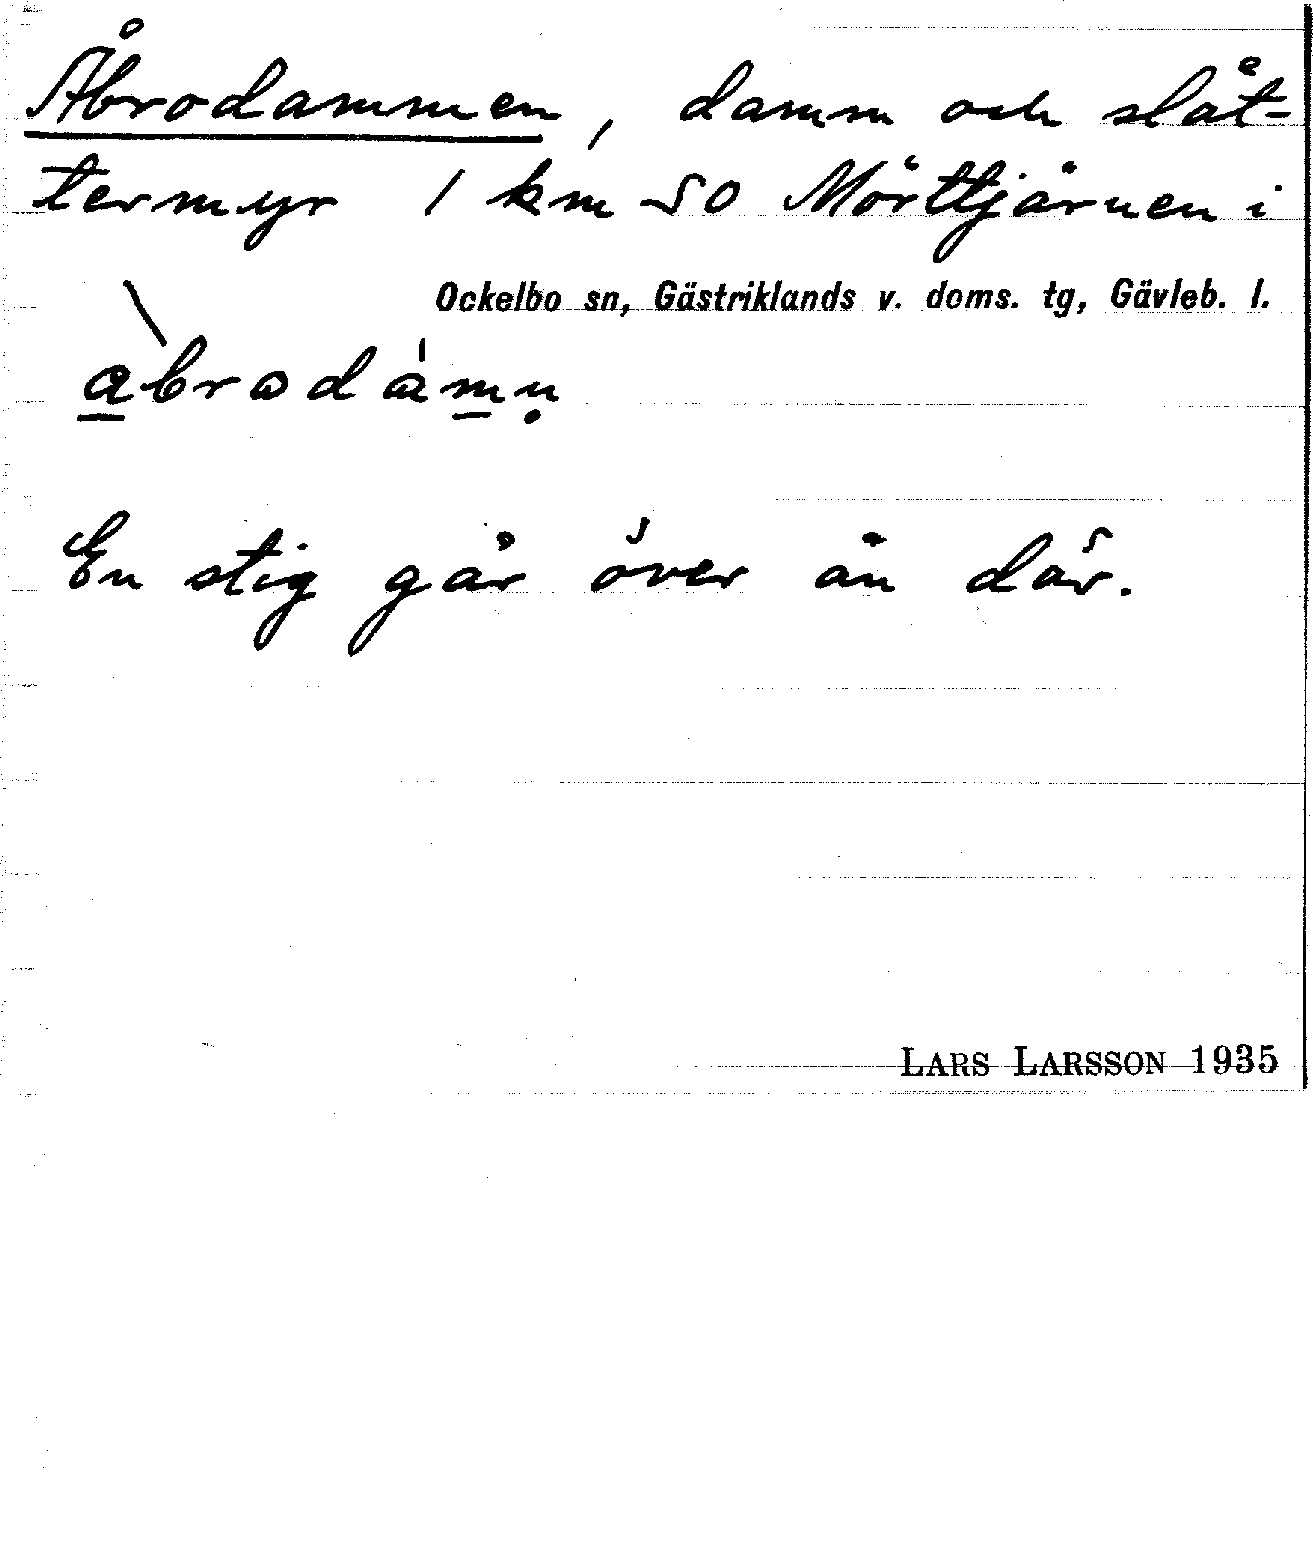 Åbrodammen, damm och slåt-
termyr 1 km SO Mörttjärnen i
Ockelbo sn, Gästriklands v. doms. tg, Gävleb. l.
En stig går över ån där.
LARS LARSSON 1935